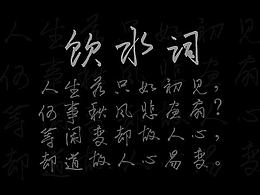 饮水词
人生若只如初见，
何事秋风悲画扇？
等闲变却故人心，
却道故人心易变。